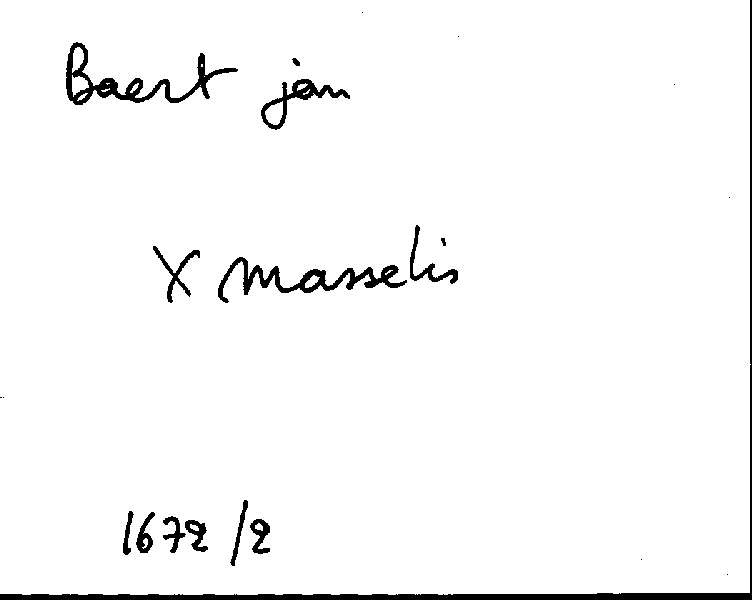 Baert jan
X masselis
1672 /2